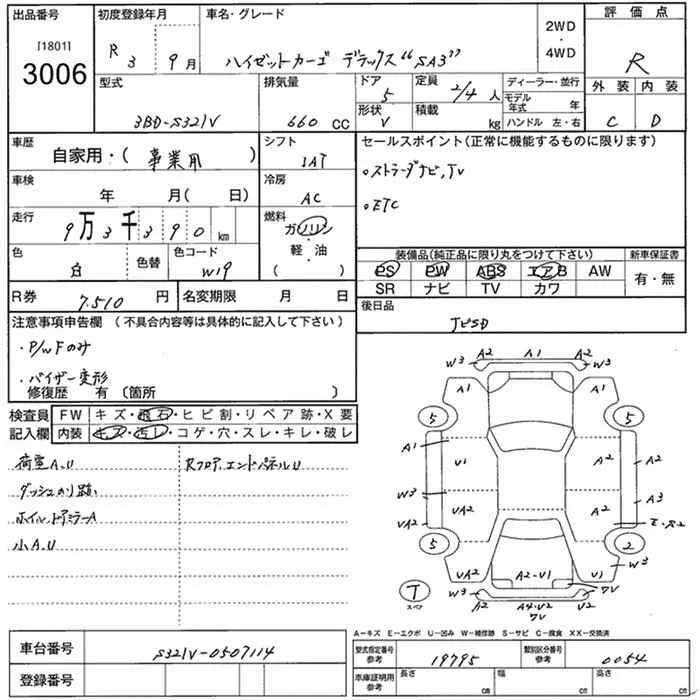 出品番号 [1801] 3006
初度登録年月 R 3 9月
車名・グレード ハイゼットカーゴ デラックス“SA3”
2WD ・ 4WD
評価点 R
外装 C 内装 D
型式 3BD-S321V
排気量 660 CC
ドア 5 形状 V
定員 2/4 人 積載 kg
ディーラー・並行
モデル年式 年
ハンドル 左・右
車歴 自家用・( 事業用 )
シフト IAT
車検 年 月( 日)
冷房 AC
走行 9万3千390 km
燃料 ガソリン ・ 軽・油 ( )
色 白 色替
色コード W19
R券 7.510 円
名変期限 月 日
セールスポイント(正常に機能するものに限ります)
。ストラーダナビ,TV
。ETC
装備品(純正品に限り丸をつけて下さい) 新車保証書
PS PW ABS エアB AW 有・無
SR ナビ TV カワ
後日品
注意事項申告欄 (不具合内容等は具体的に記入して下さい)
・P/WFのみ
・バイザー変形
修復歴 有 (箇所 )
検査員記入欄
FW キズ・飛石・ヒビ割・リペア跡・X要
内装 キズ・汚レ・コゲ・穴・スレ・キレ・破レ
荷室A.U RフロアエンドパネルU
ダッシュのり跡
ホイルドアミラーA
小A.U
W3 A2 A1 A2 W3
A1 A1
5 5
A1 U1 A2 A2
W3 UA2 A2 A3
UA2 E-S2
5 2
UA2 A2-U1 U1 W3
7V
T スペア
W3 A2 A4・U2 U2
7V
A-キズ E-エクボ U-凹み W-補修跡 S-サビ C-腐食 XX-交換済
車台番号 S321V-0507114
登録番号
型式指定番号 参考 19795
類別区分番号 参考 0054
車庫証明用 参考 長さ cm 幅 cm 高さ cm